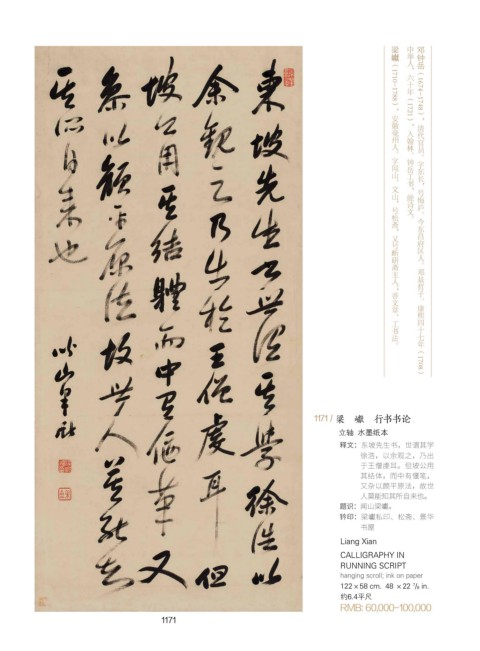 東坡先生書世謂其學徐浩以
余觀之乃出於王僧虔耳但
坡公用其結體而中有偃筆又
雜以顏平原法故世人莫能知
其所自来也
邓钟岳（1674-1748），清代官员。字东长，号悔庐，今东昌府区人，邓基哲子。康熙四十七年（1708）
中举人，六十年（1721），入翰林。钟岳工书，能诗文。
梁巘（1710-1788），安徽亳州人。字闻山、文山，号松斋，又号断砚斋主人。善文章，工书法。
1171/ 梁 巘 行书书论
立轴 水墨纸本
释文：东坡先生书，世谓其学
徐浩，以余观之，乃出
于王僧虔耳。但坡公用
其结体，而中有偃笔，
又杂以颜平原法，故世
人莫能知其所自来也。
题识：闻山梁巘。
钤印：梁巘私印、松斋、景华
书屋
Liang Xian
CALLIGRAPHY IN
RUNNING SCRIPT
hanging scroll; ink on paper
122×58 cm. 48 ×22 7/8 in.
约6.4平尺
RMB: 60,000-100,000
1171